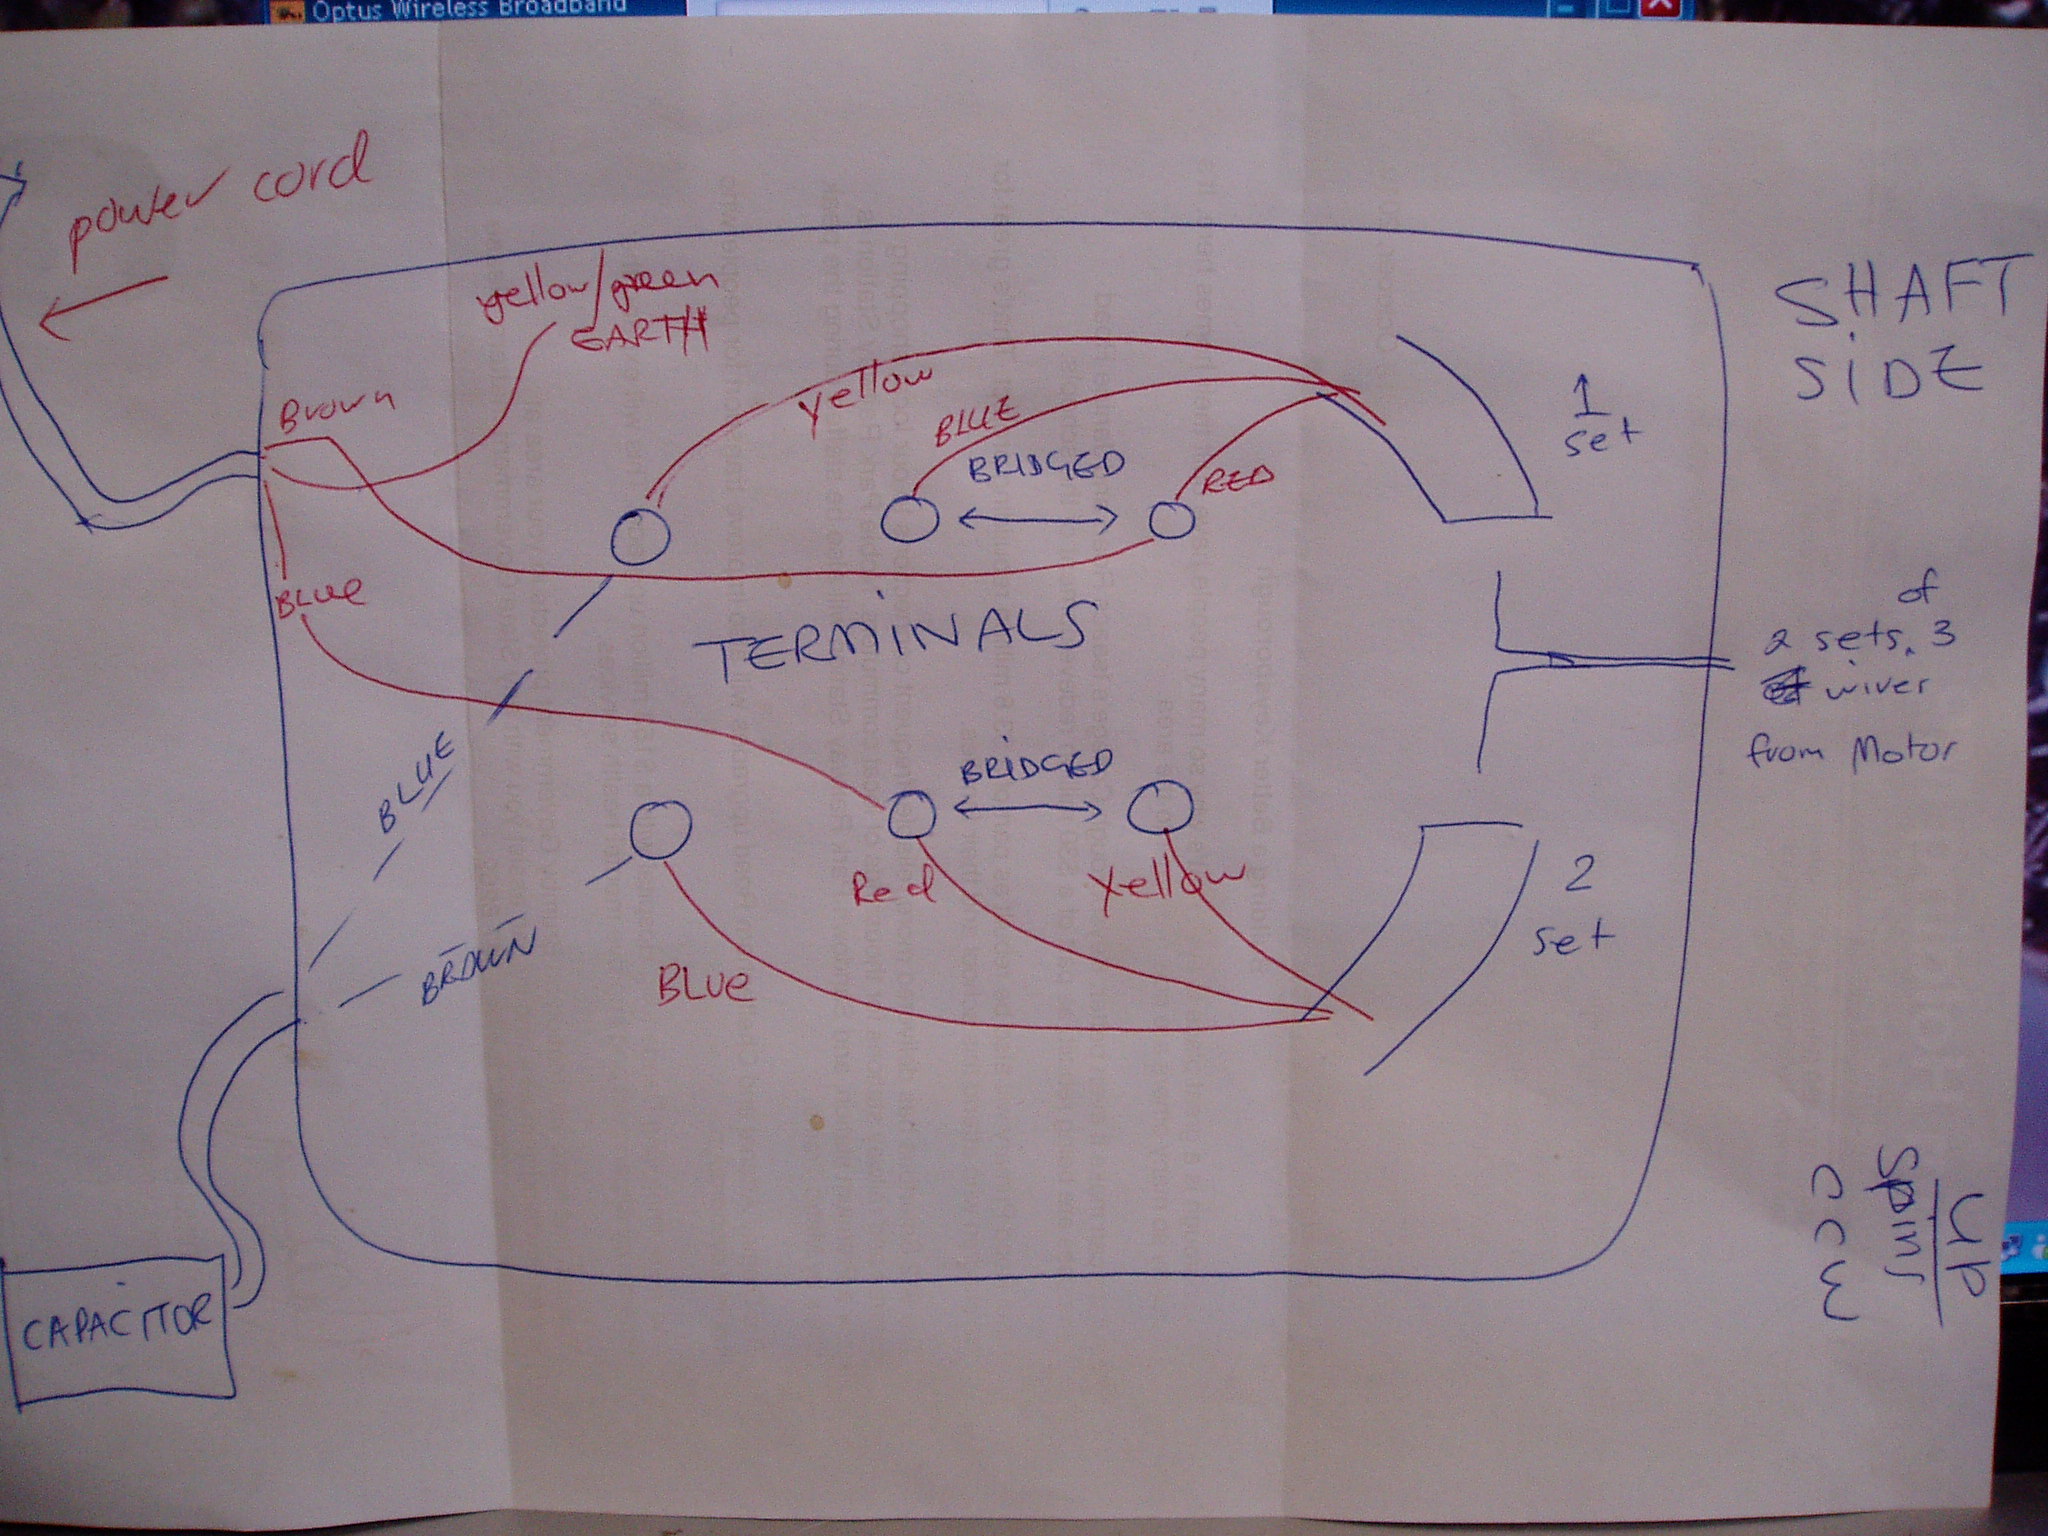 Optus Wireless Broadband
power cord
yellow/green
EARTH
SHAFT
SIDE
Brown
yellow
BLUE
BRIDGED
RED
1
set
BLUe
TERMINALS
of
2 sets. 3
wires
from Motor
BLUE
BRIDGED
Red
Yellow
2
set
BROWN
BLUe
UP
Spins
CCW
CAPACITOR